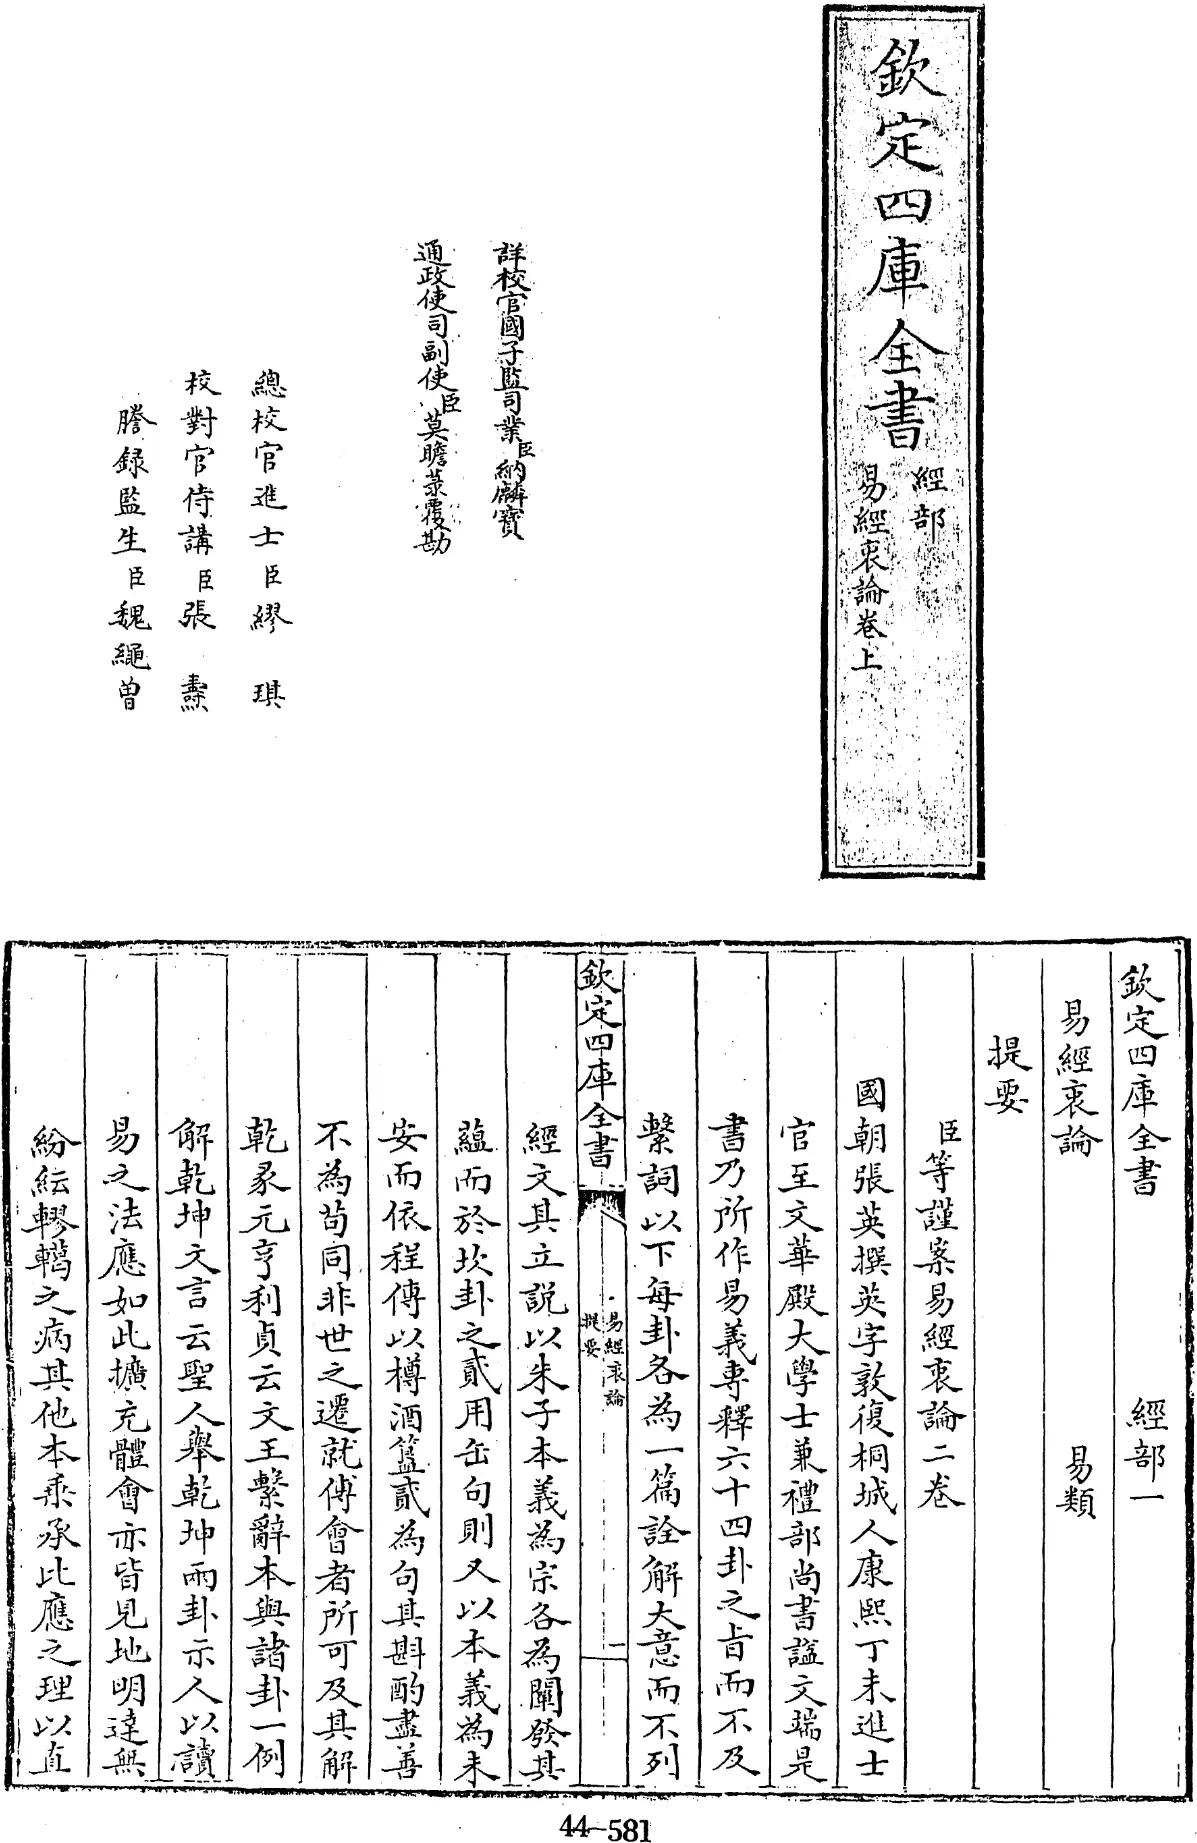 欽定四庫全書
經部
易經衷論卷上
詳校官國子監司業臣納麟寶
通政使司副使臣莫瞻菉覆勘
總校官進士臣繆琪
校對官侍講臣張燾
謄錄監生臣魏繩曾
欽定四庫全書 經部一
易經衷論 易類
提要
臣等謹案易經衷論二卷
國朝張英撰英字敦復桐城人康熙丁未進士
官至文華殿大學士兼禮部尚書諡文端是
書乃所作易義專釋六十四卦之旨而不及
繫詞以下每卦各為一篇詮解大意而不列
欽定四庫全書
易經衷論
提要
一
經文其立説以朱子本義為宗各為闡發其
蘊而於坎卦之貳用缶句則又以本義為未
安而依程傳以樽酒簋貳為句其斟酌盡善
不為苟同非世之遷就傅會者所可及其解
乾彖元亨利貞云文王繫辭本與諸卦一例
解乾坤文言云聖人舉乾坤兩卦示人以讀
易之法應如此擴充體會亦皆見地明達無
紛紜轇轕之病其他本乘承比應之理以直
44-581